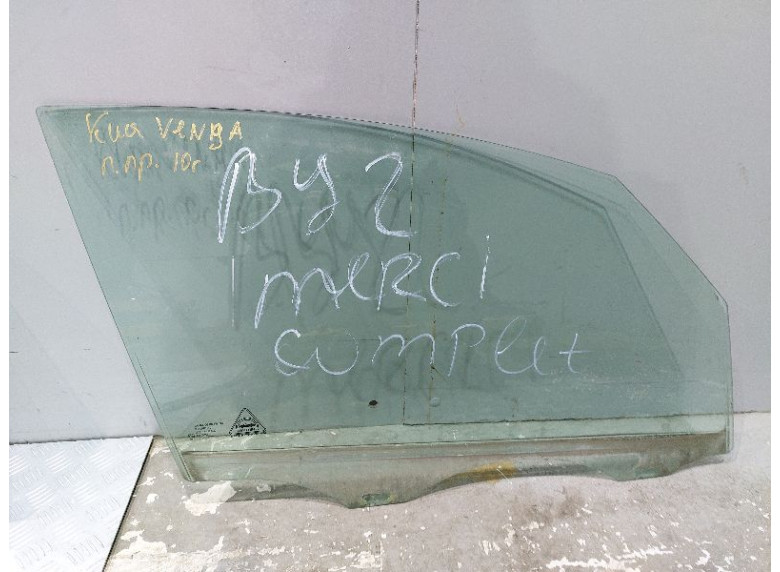 Kиа VENGA
п.пр. 10г
ВУ 2
merci
complet